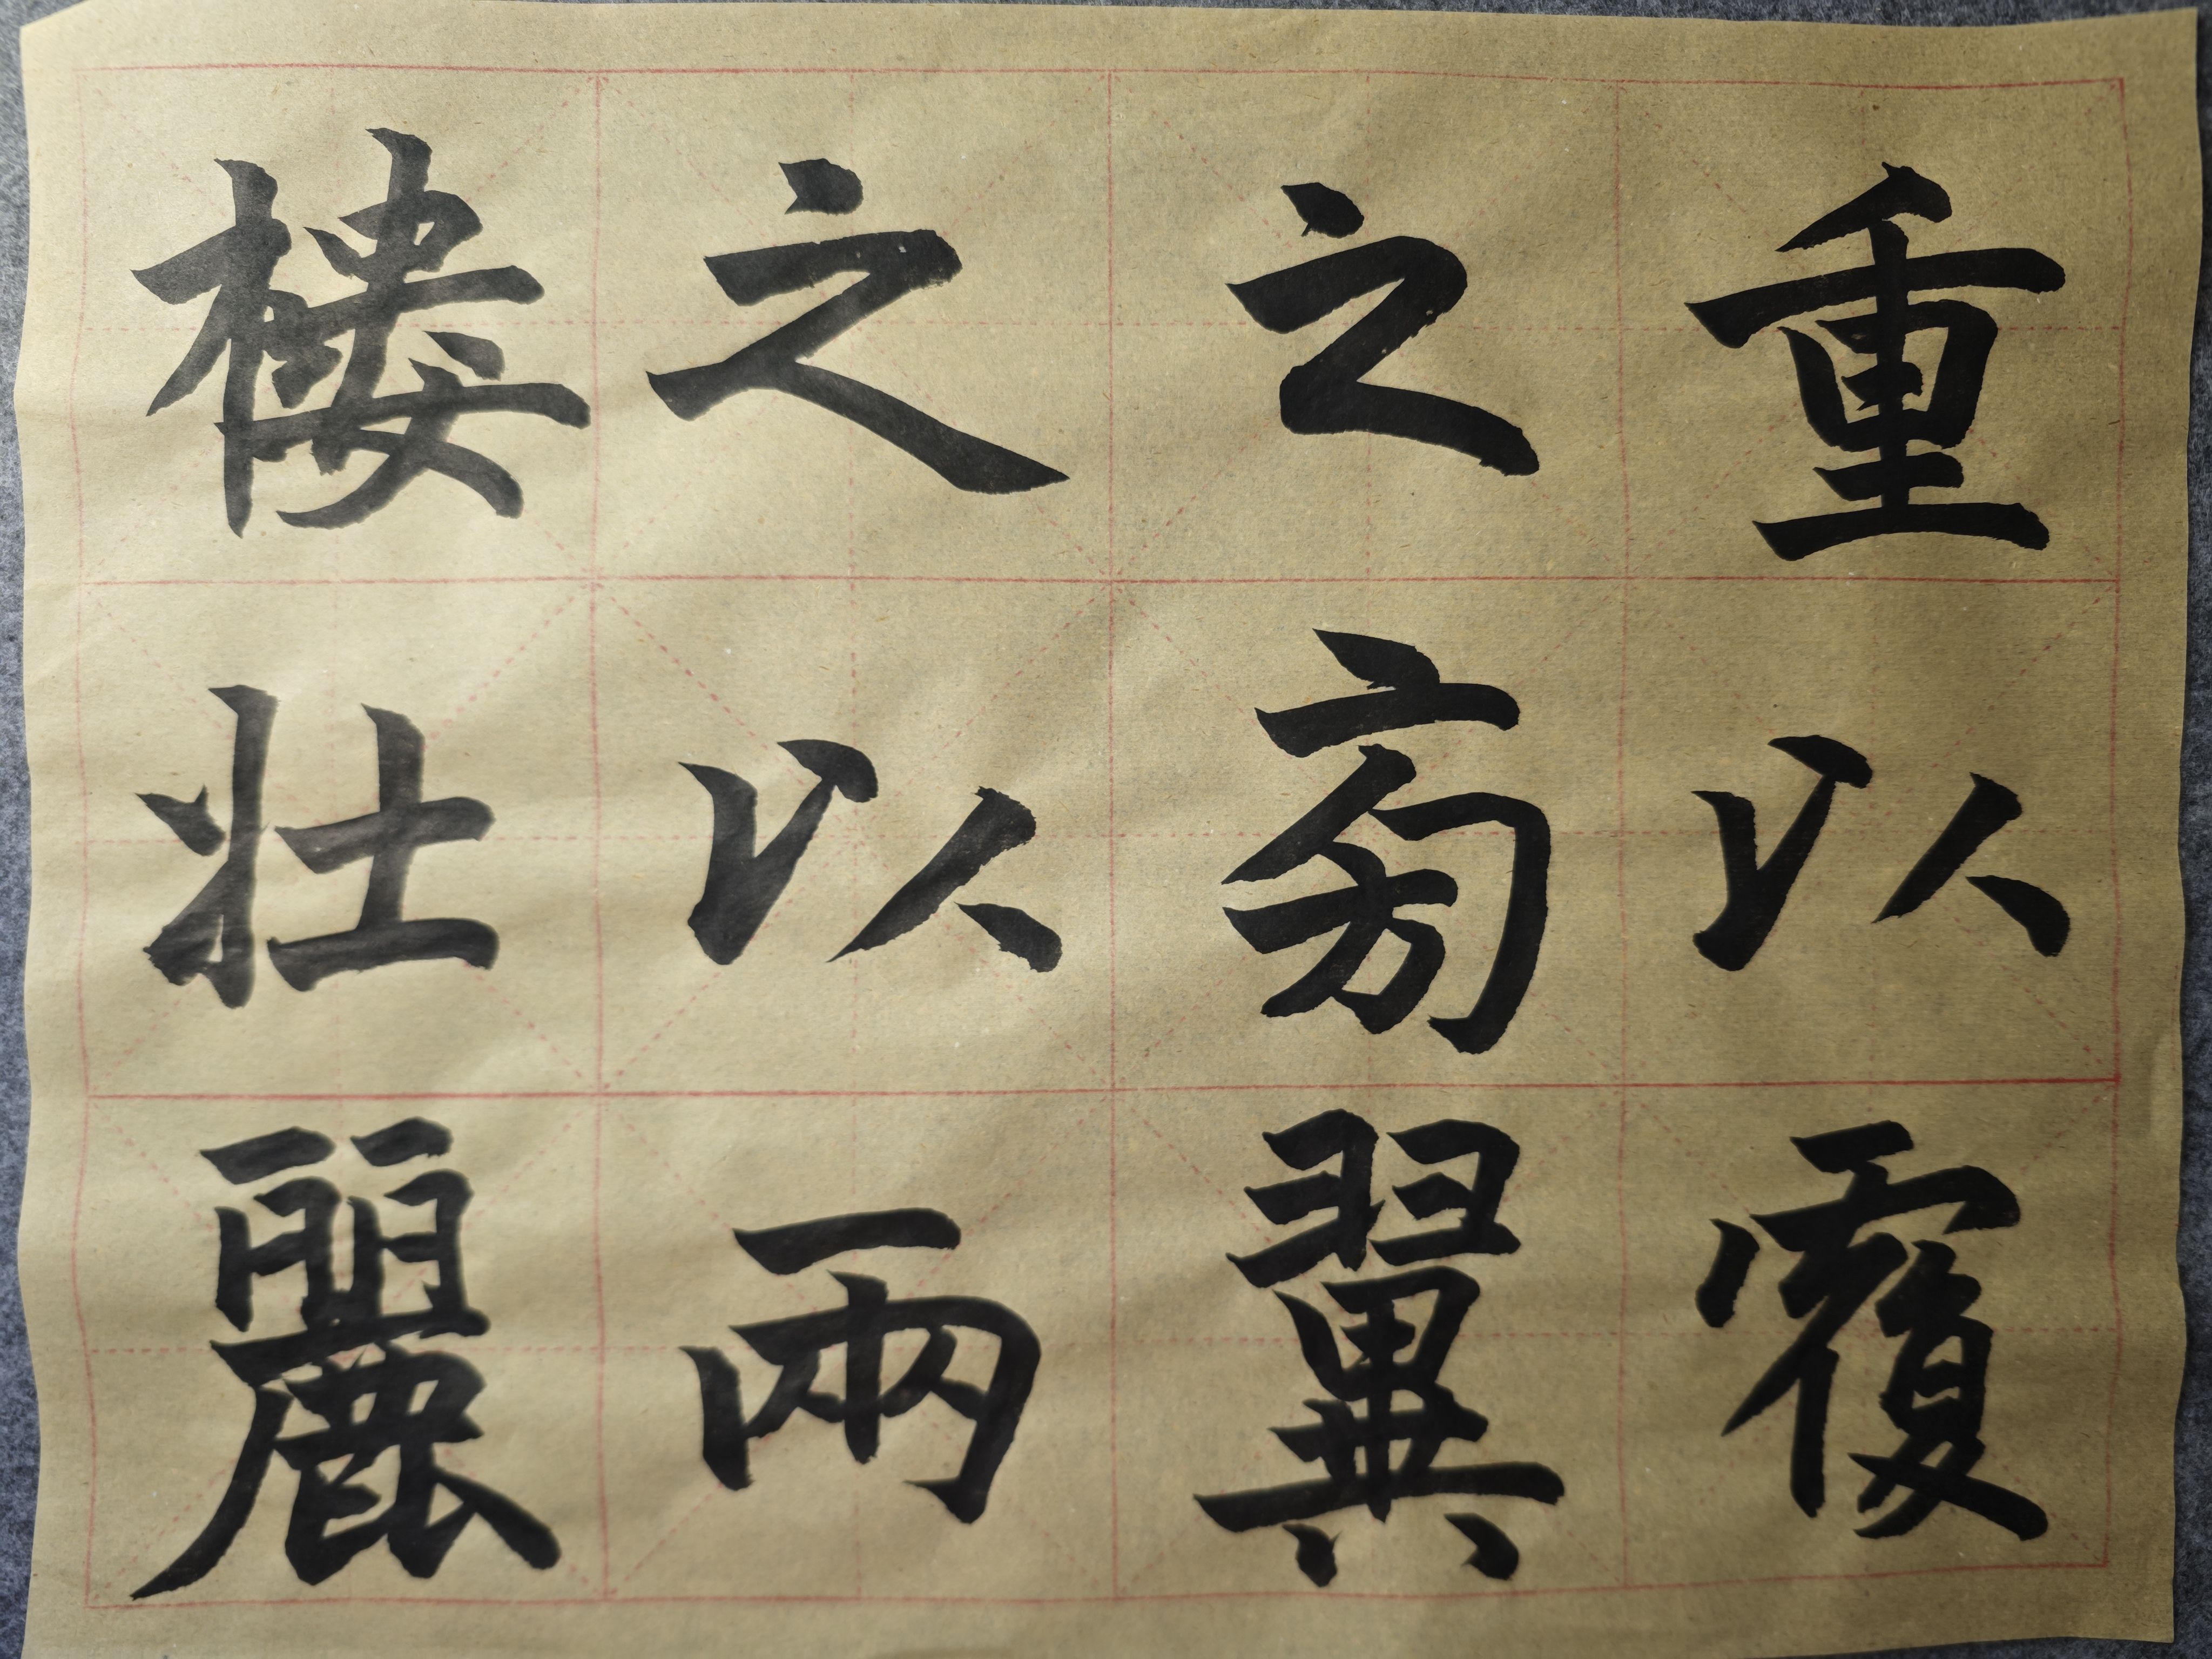 重以覆
之旁翼
之以兩
樓壯麗